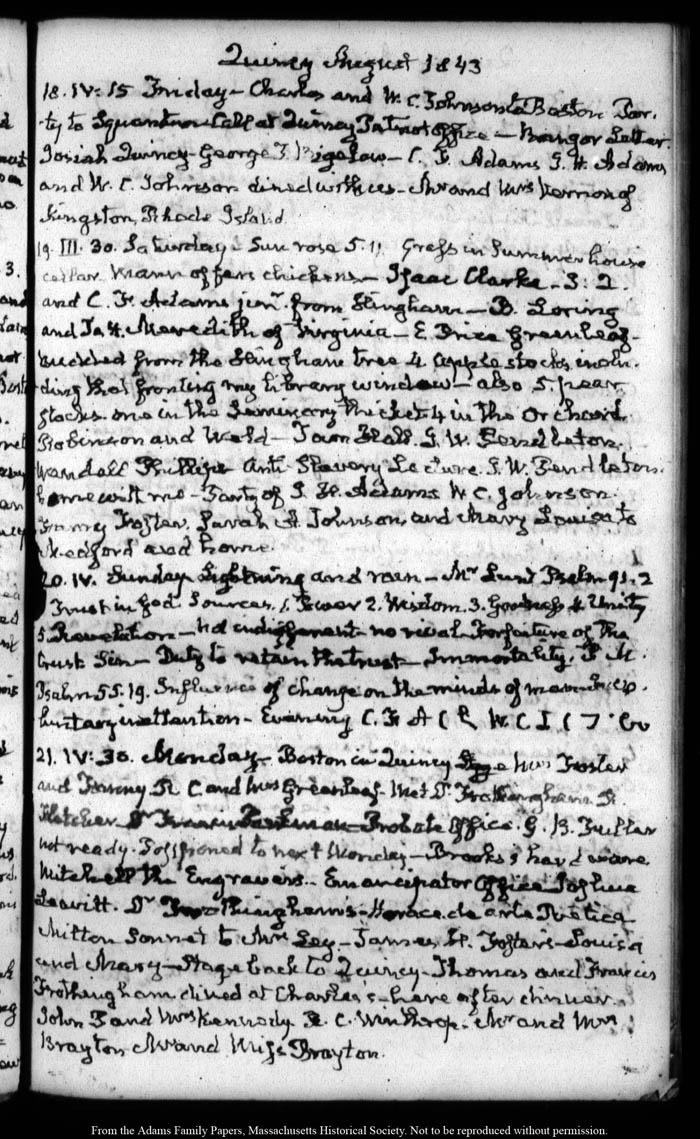 Quincy August 1843
18. IV: 15 Friday - Charles and W. C. Johnson to Boston Par-
ty to Squantum Call at Quincy Patriot office - Bangor Letter.
Josiah Quincy - George T. Bigelow - C. F. Adams I. H. Adams
and W. C. Johnson dined with us - Mr and Mrs Vernon of
Kingston, Rhode Island.
19. III. 30. Saturday - Sun rose 5. 11 in Summer house
cellar. Mann offers chickens - Isaac Clarke - I: 2.
and C. F. Adams junr. from Hingham - B. Loring
and Ja. H. Meredith of Virginia - E. Price Greenleaf -
budded from the Hingham tree 4 apple stocks, inclu-
ding that fronting my library window - also 5 pear
stocks. one in the Seminary thicket 4 in the Orchard
Robinson and Weld - Town Hall. G. W. Pendleton.
Wendall Phillips Anti-Slavery Lecture. G. W. Pendleton.
home with me - Party of I. H. Adams W C. Johnson
Fanny Foster, Sarah A. Johnson, and Mary Louisa to
Medford and home.
20. IV. Sunday. Lightning and rain - Mr Lunt Psalm 91. 2
Trust in God. Sources, 1. Power 2. Wisdom. 3. Goodness 4. Unity
5. Revelation - not indifferent - no rival. Forfeiture of the
trust Sin - Duty to retain the trust - Immortality. P. M.
Psalm 55. 19. Influence of change on the minds of man
Evening C. F A W. C I
21. IV: 30. Monday - Boston in Quincy Stage Mrs Foster
and Fanny R C and Mrs Greenleaf - Met Dr Frothingham R.
Fletcher Dr Francis Parkman - Probate Office. G. B. Fuller
not ready. Postponed to next Monday - Brooks's hardware
Mitchell the Engravers - Emancipator Office Joshua
Leavitt. Dr Frothingham's - Horace de arte Poetica
Milton Sonnet to Mrs Ley - James H. Foster's - Louisa
and Mary - Stage back to Quincy - Thomas and Francis
Frothingham dined at Charles's - here after dinner.
John F and Mrs Kennedy R. C. Winthrop. Mr and Mrs
Brayton Mr and Miss Brayton.
From the Adams Family Papers, Massachusetts Historical Society. Not to be reproduced without permission.